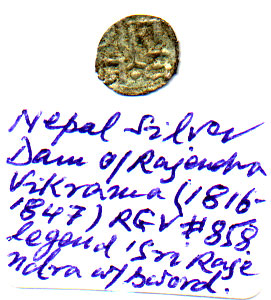 Nepal Silver
Dam of Rajendra
Vikrama (1816-
1847) RGV #858
legend 'Sri Raje
ndra w/ sword.